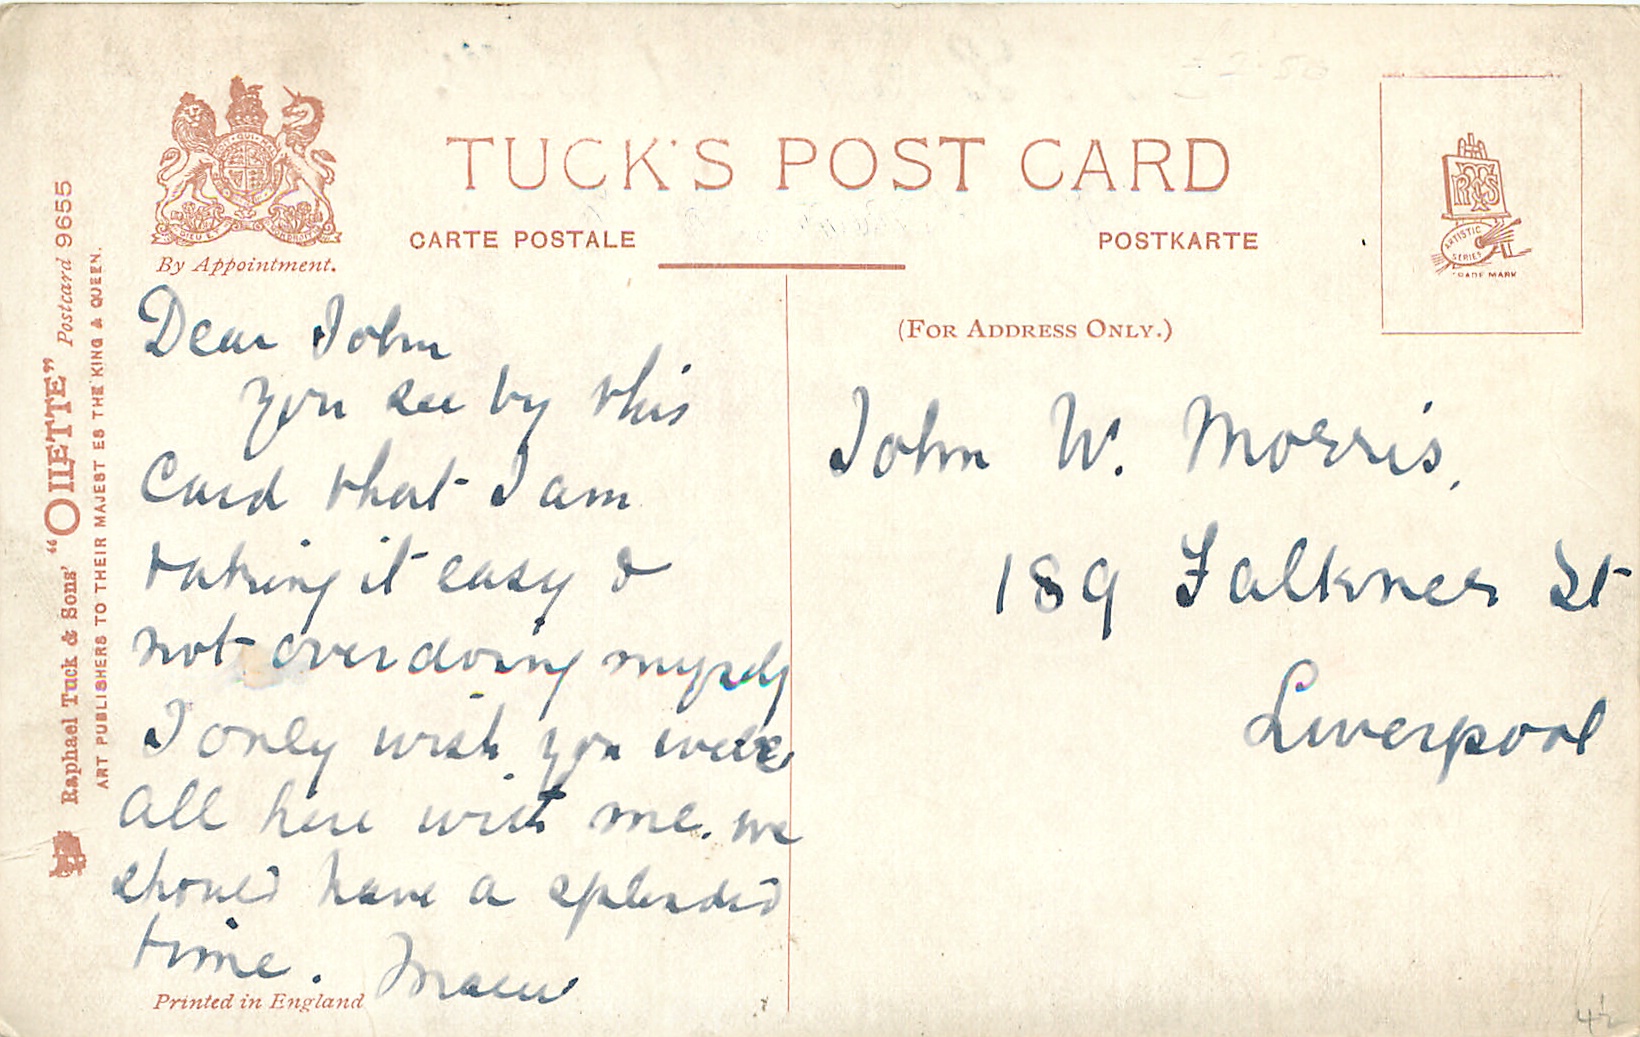 TUCK'S POST CARD
CARTE POSTALE
POSTKARTE
By Appointment.
(FOR ADDRESS ONLY.)
RT&S
ARTISTIC
SERIES
TRADE MARK
Raphael Tuck & Sons' "OILETTE" Postcard 9655
ART PUBLISHERS TO THEIR MAJESTIES THE KING & QUEEN.
Dear John
you see by this
Card that I am
taking it easy &
not overdoing myself
I only wish you were
all here with me. we
should have a splendid
time.
Printed in England
John W. Morris,
189 Falkner St
Liverpool